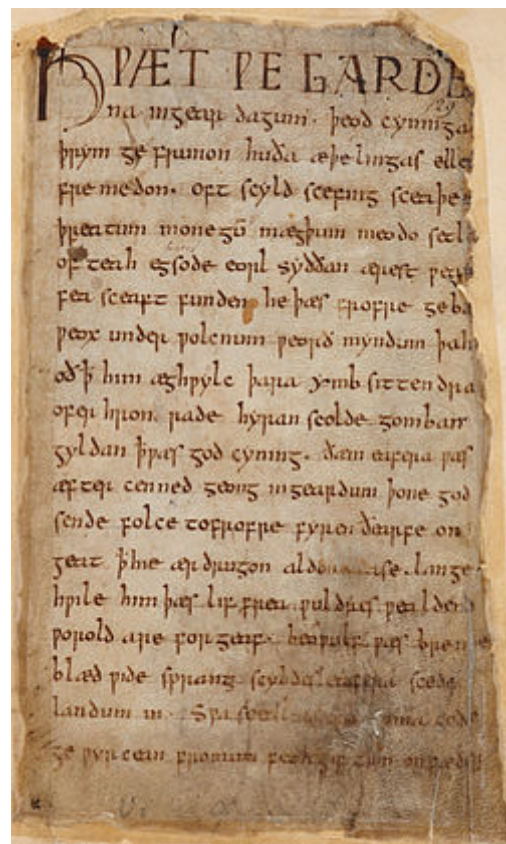 HǷÆT ǷE GARDE
na ingear dagum · þeod cyninga
þrym ge frunon huða æþelingas elle
fremedon. oft scyld scefing sceaþe
þreatum monegū mægþum meodo setla
of teah egsode eorl syððan ærest ƿea
fea sceaft funden he þæs frofre geba
ƿeox under ƿolcnum ƿeorð myndum þah
oð ꝥ him æghƿylc þara ymb sittendra
ofer hron rade hyran scolde gomban
gyldan ꝥ ƿæs god cyning. ðæm eafera ƿæs
æfter cenned geong in geardum þone god
sende folce tofrofre fyren ðearfe on
geat ꝥ hie ær drugon aldor ase. lange
hƿile him þæs lif frea ƿuldres ƿealdend
ƿorold are forgeaf. beoƿulf ƿæs breme
blæd ƿide sprang scyldes eafera scede
landum in. Sƿa gode
ge ƿyrcean fromum feoh giftum on fæder